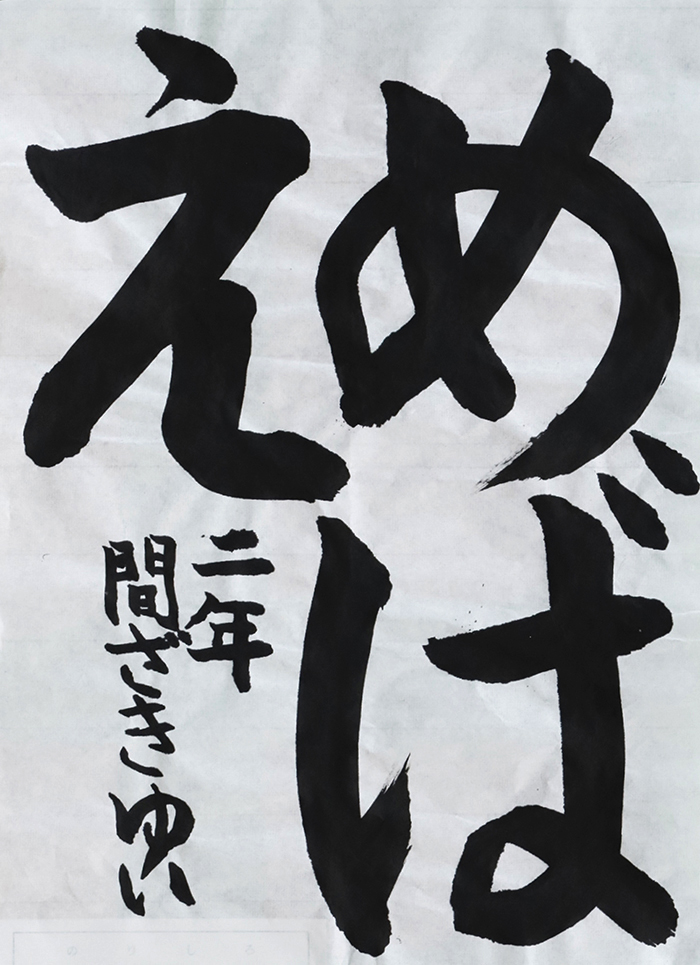 めば
え
二年
間ざきゆい